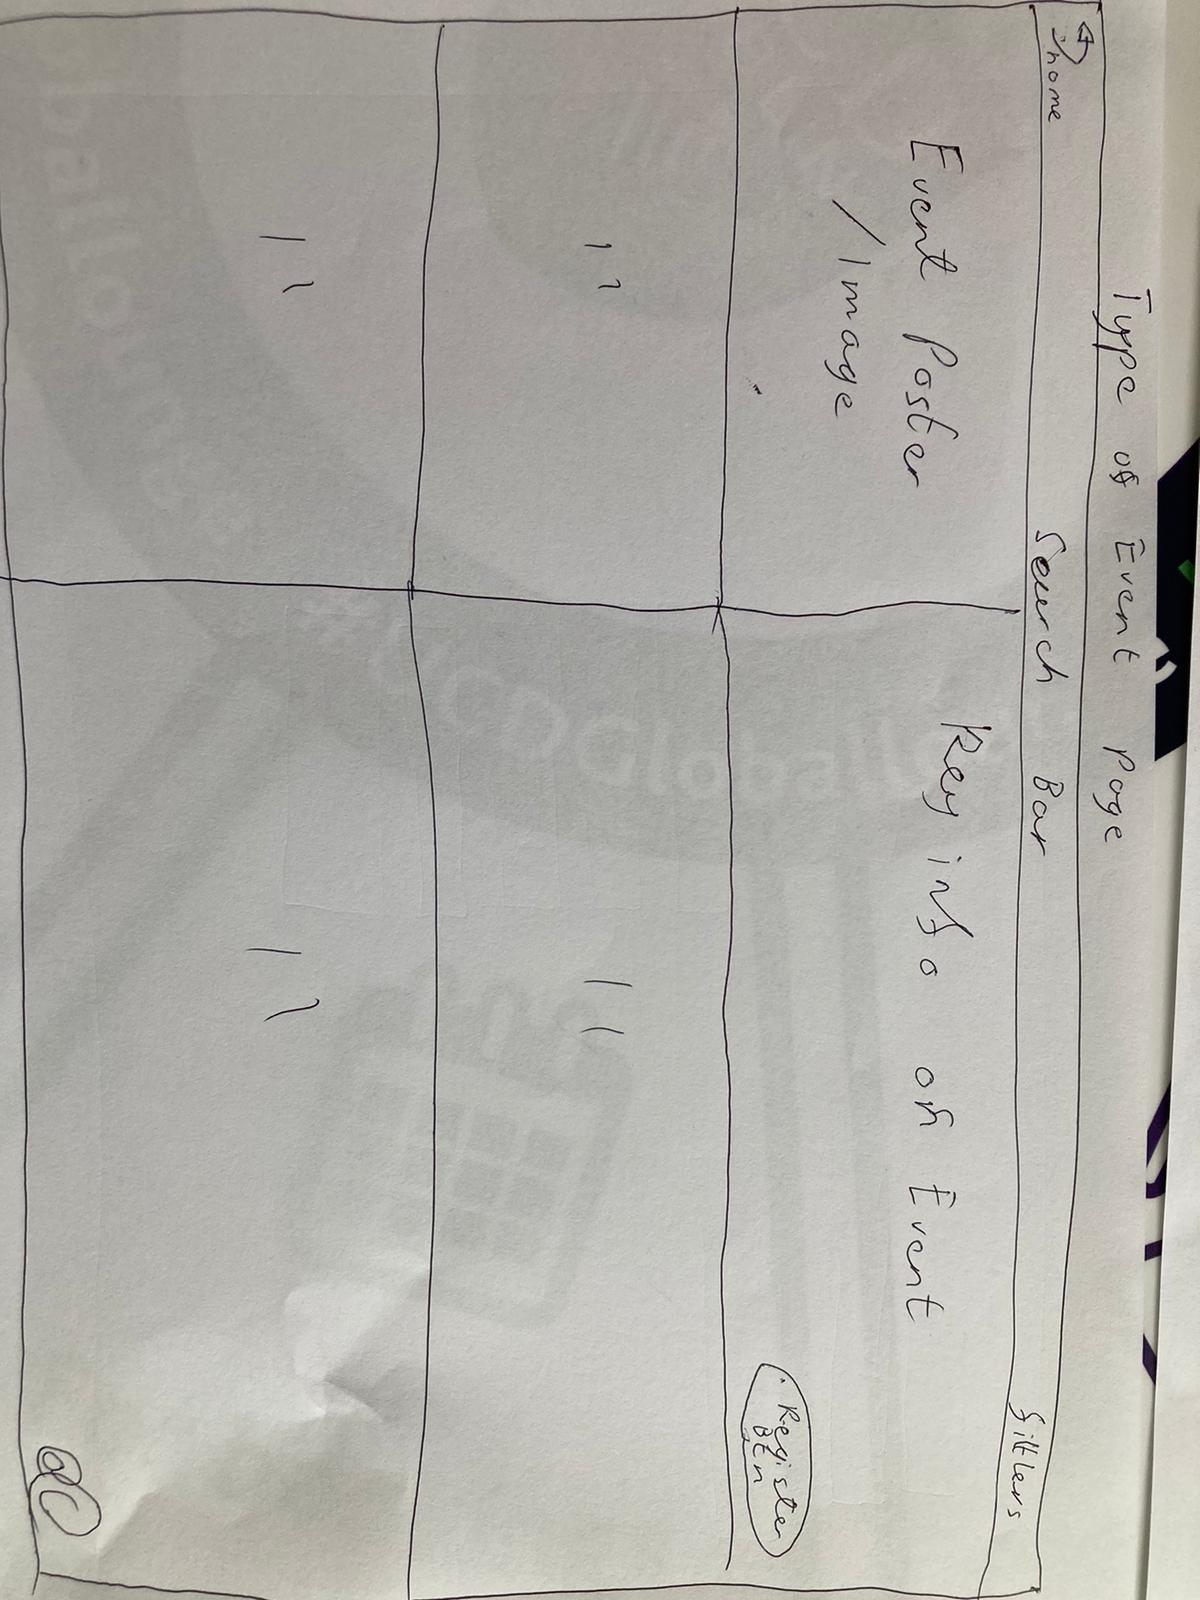 Type of Event Page
home
Search Bar
filtlers
Event Poster
/Image
Key info on Event
Register
Btn
"
"
"
"
UCDGlobal